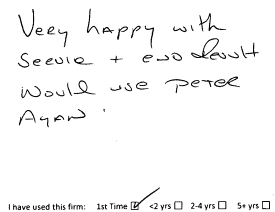 Very happy with
Service + end result
Would use Peter
Again.
I have used this firm: 1st Time ☑ <2 yrs ☐ 2-4 yrs ☐ 5+ yrs ☐